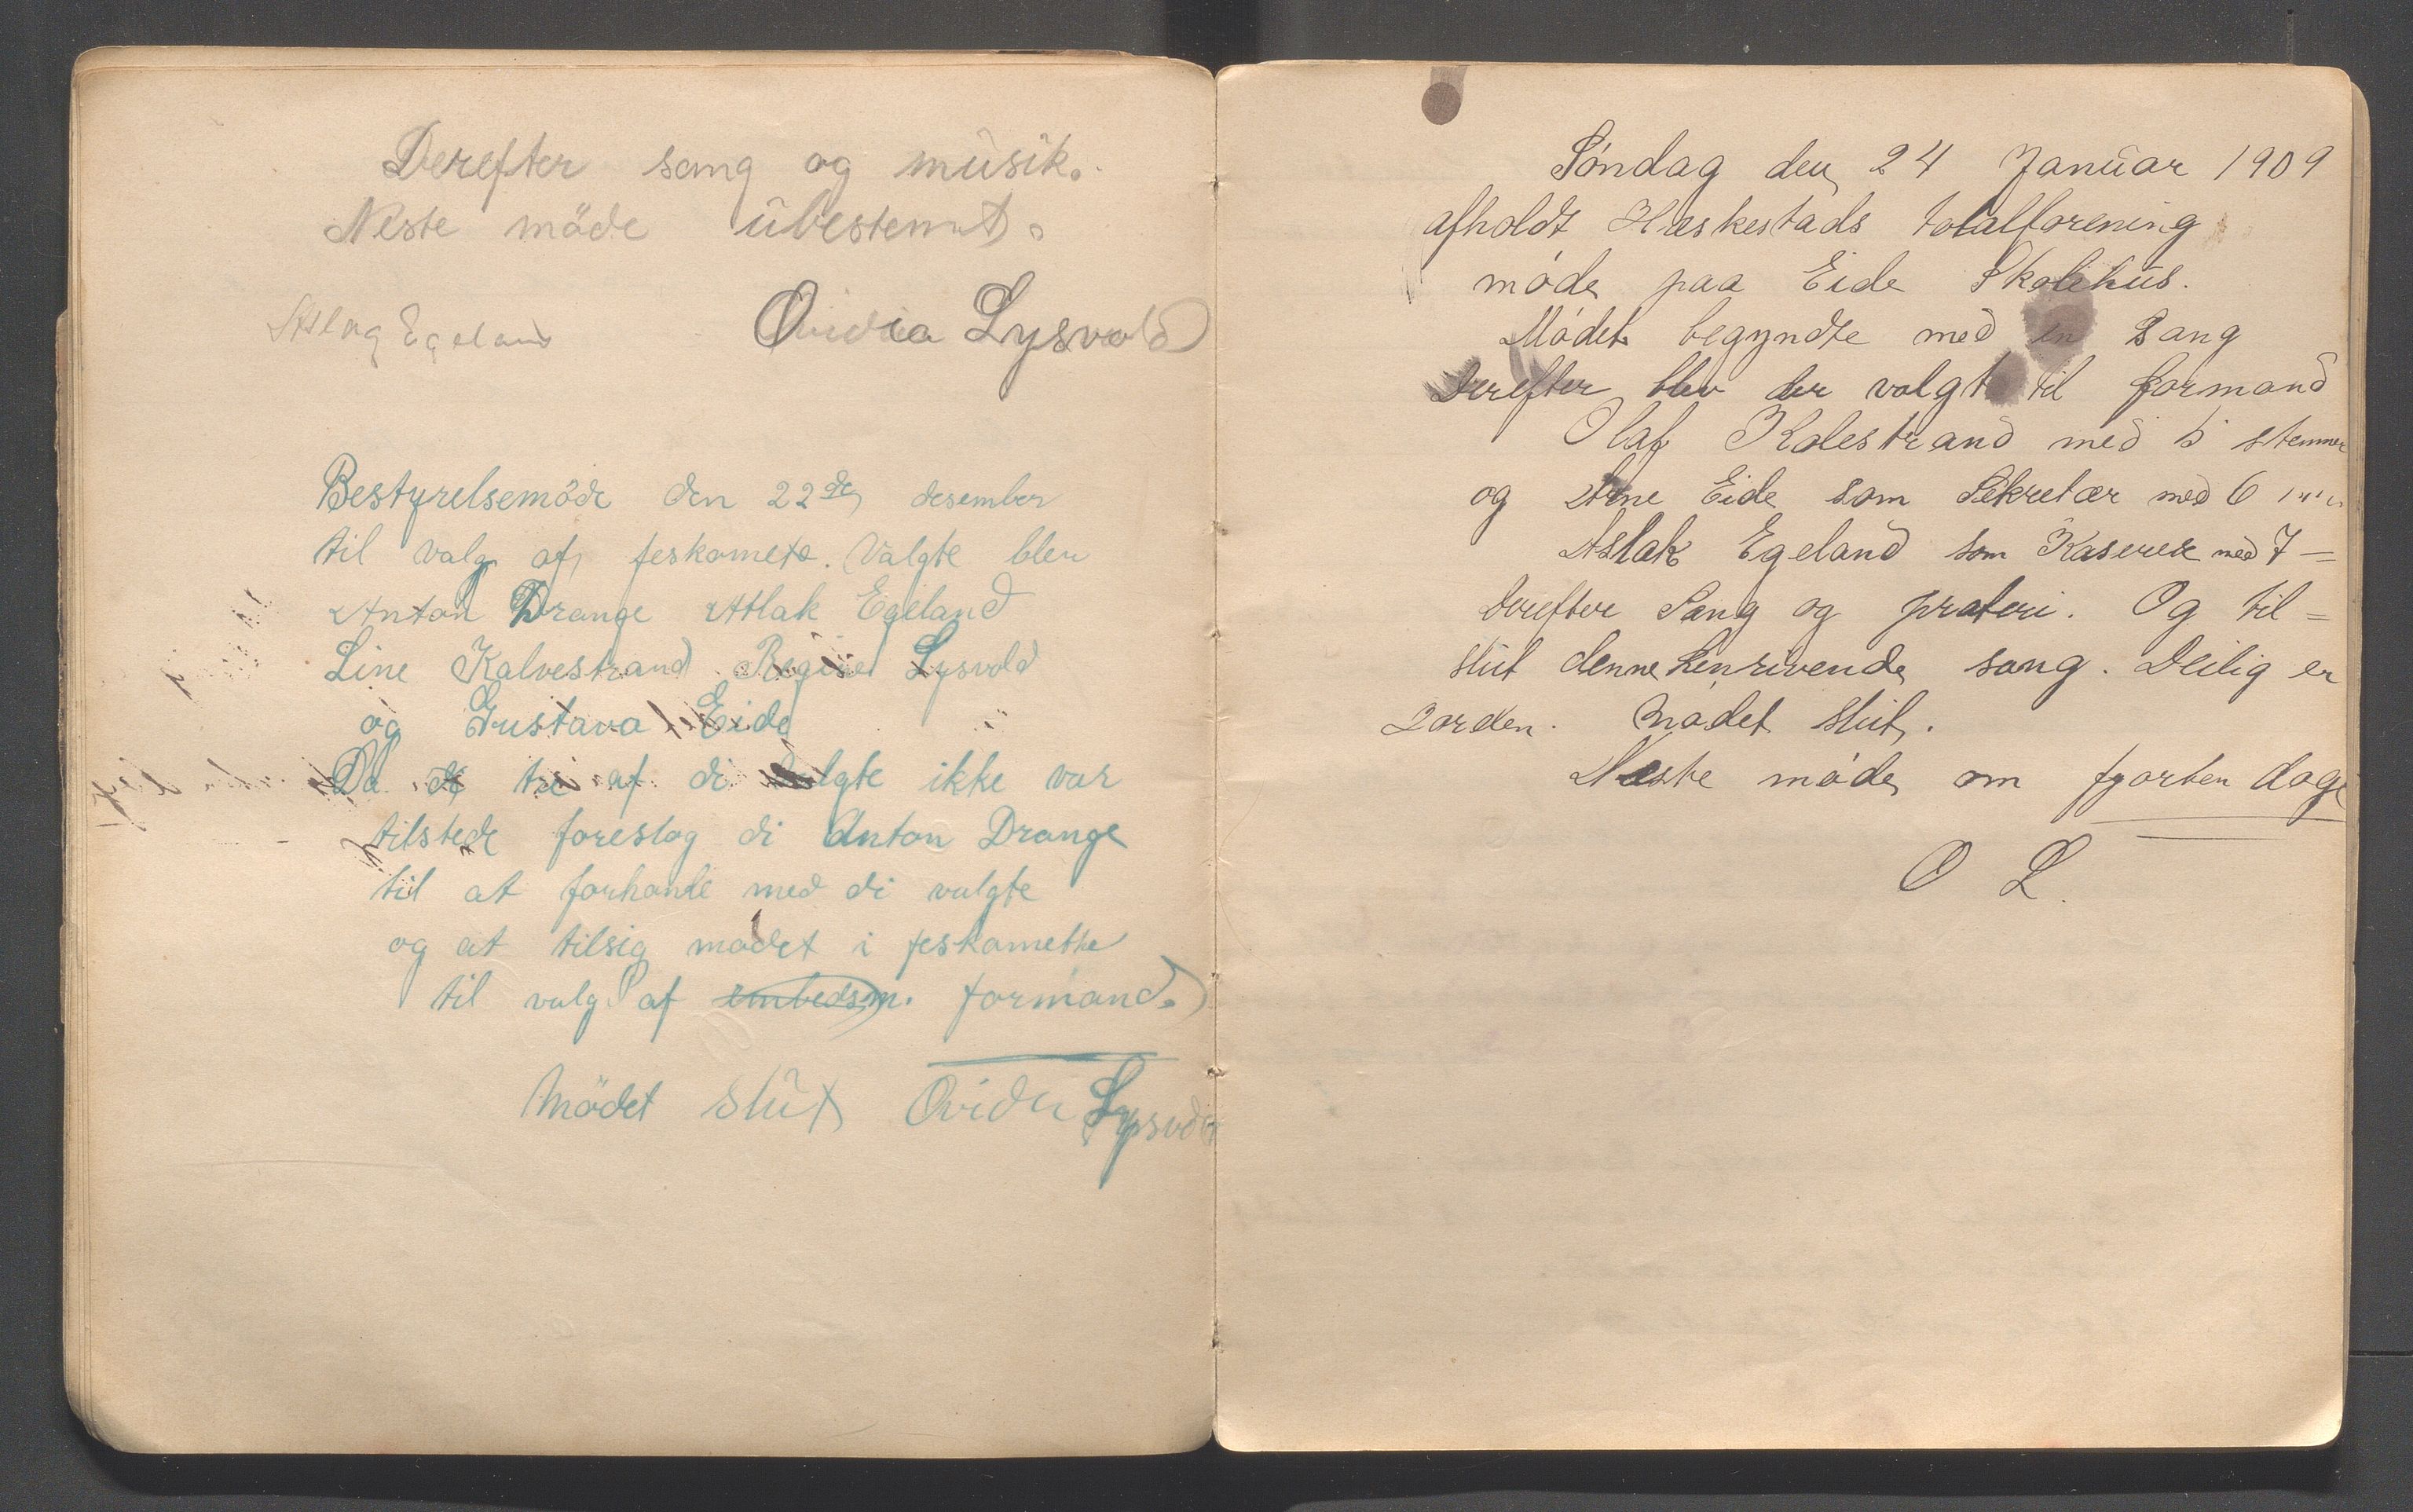 Derefter sang og musik.
Neste möde ubestemt.
Aslag Egeland Ovidia Lysvold
Bestyrelsemöde den 22de desember
til valg af feskomete. Valgte blev
Anton Drange Atlak Egeland
Line Kalvestrand Regine Lysvold
og Gustava Eide
Da di tre af di valgte ikke var
tilstede foreslog di Anton Drange
til at forhanle med di valgte
og at tilsig mødet i feskomette
til valg af embedsm. formand.
Mödet slut Ovidia Lysvold
Søndag den 24 Januar 1909
afholdt Heskestads totalforening
møde paa Eide Skolehus.
Mødet begyndte med en Sang
Derefter blev der valgt til formand
Olaf Kalestrand med 5 stemmer
og Arne Eide som Sekretær med 6
Aslak Egeland som Kaserer med 7 =
derefter Sang og prateri. Og til=
slut denne henrivende sang. Deilig er
Jorden. Mødet slut.
Neste møde om fjorten dage
O L.